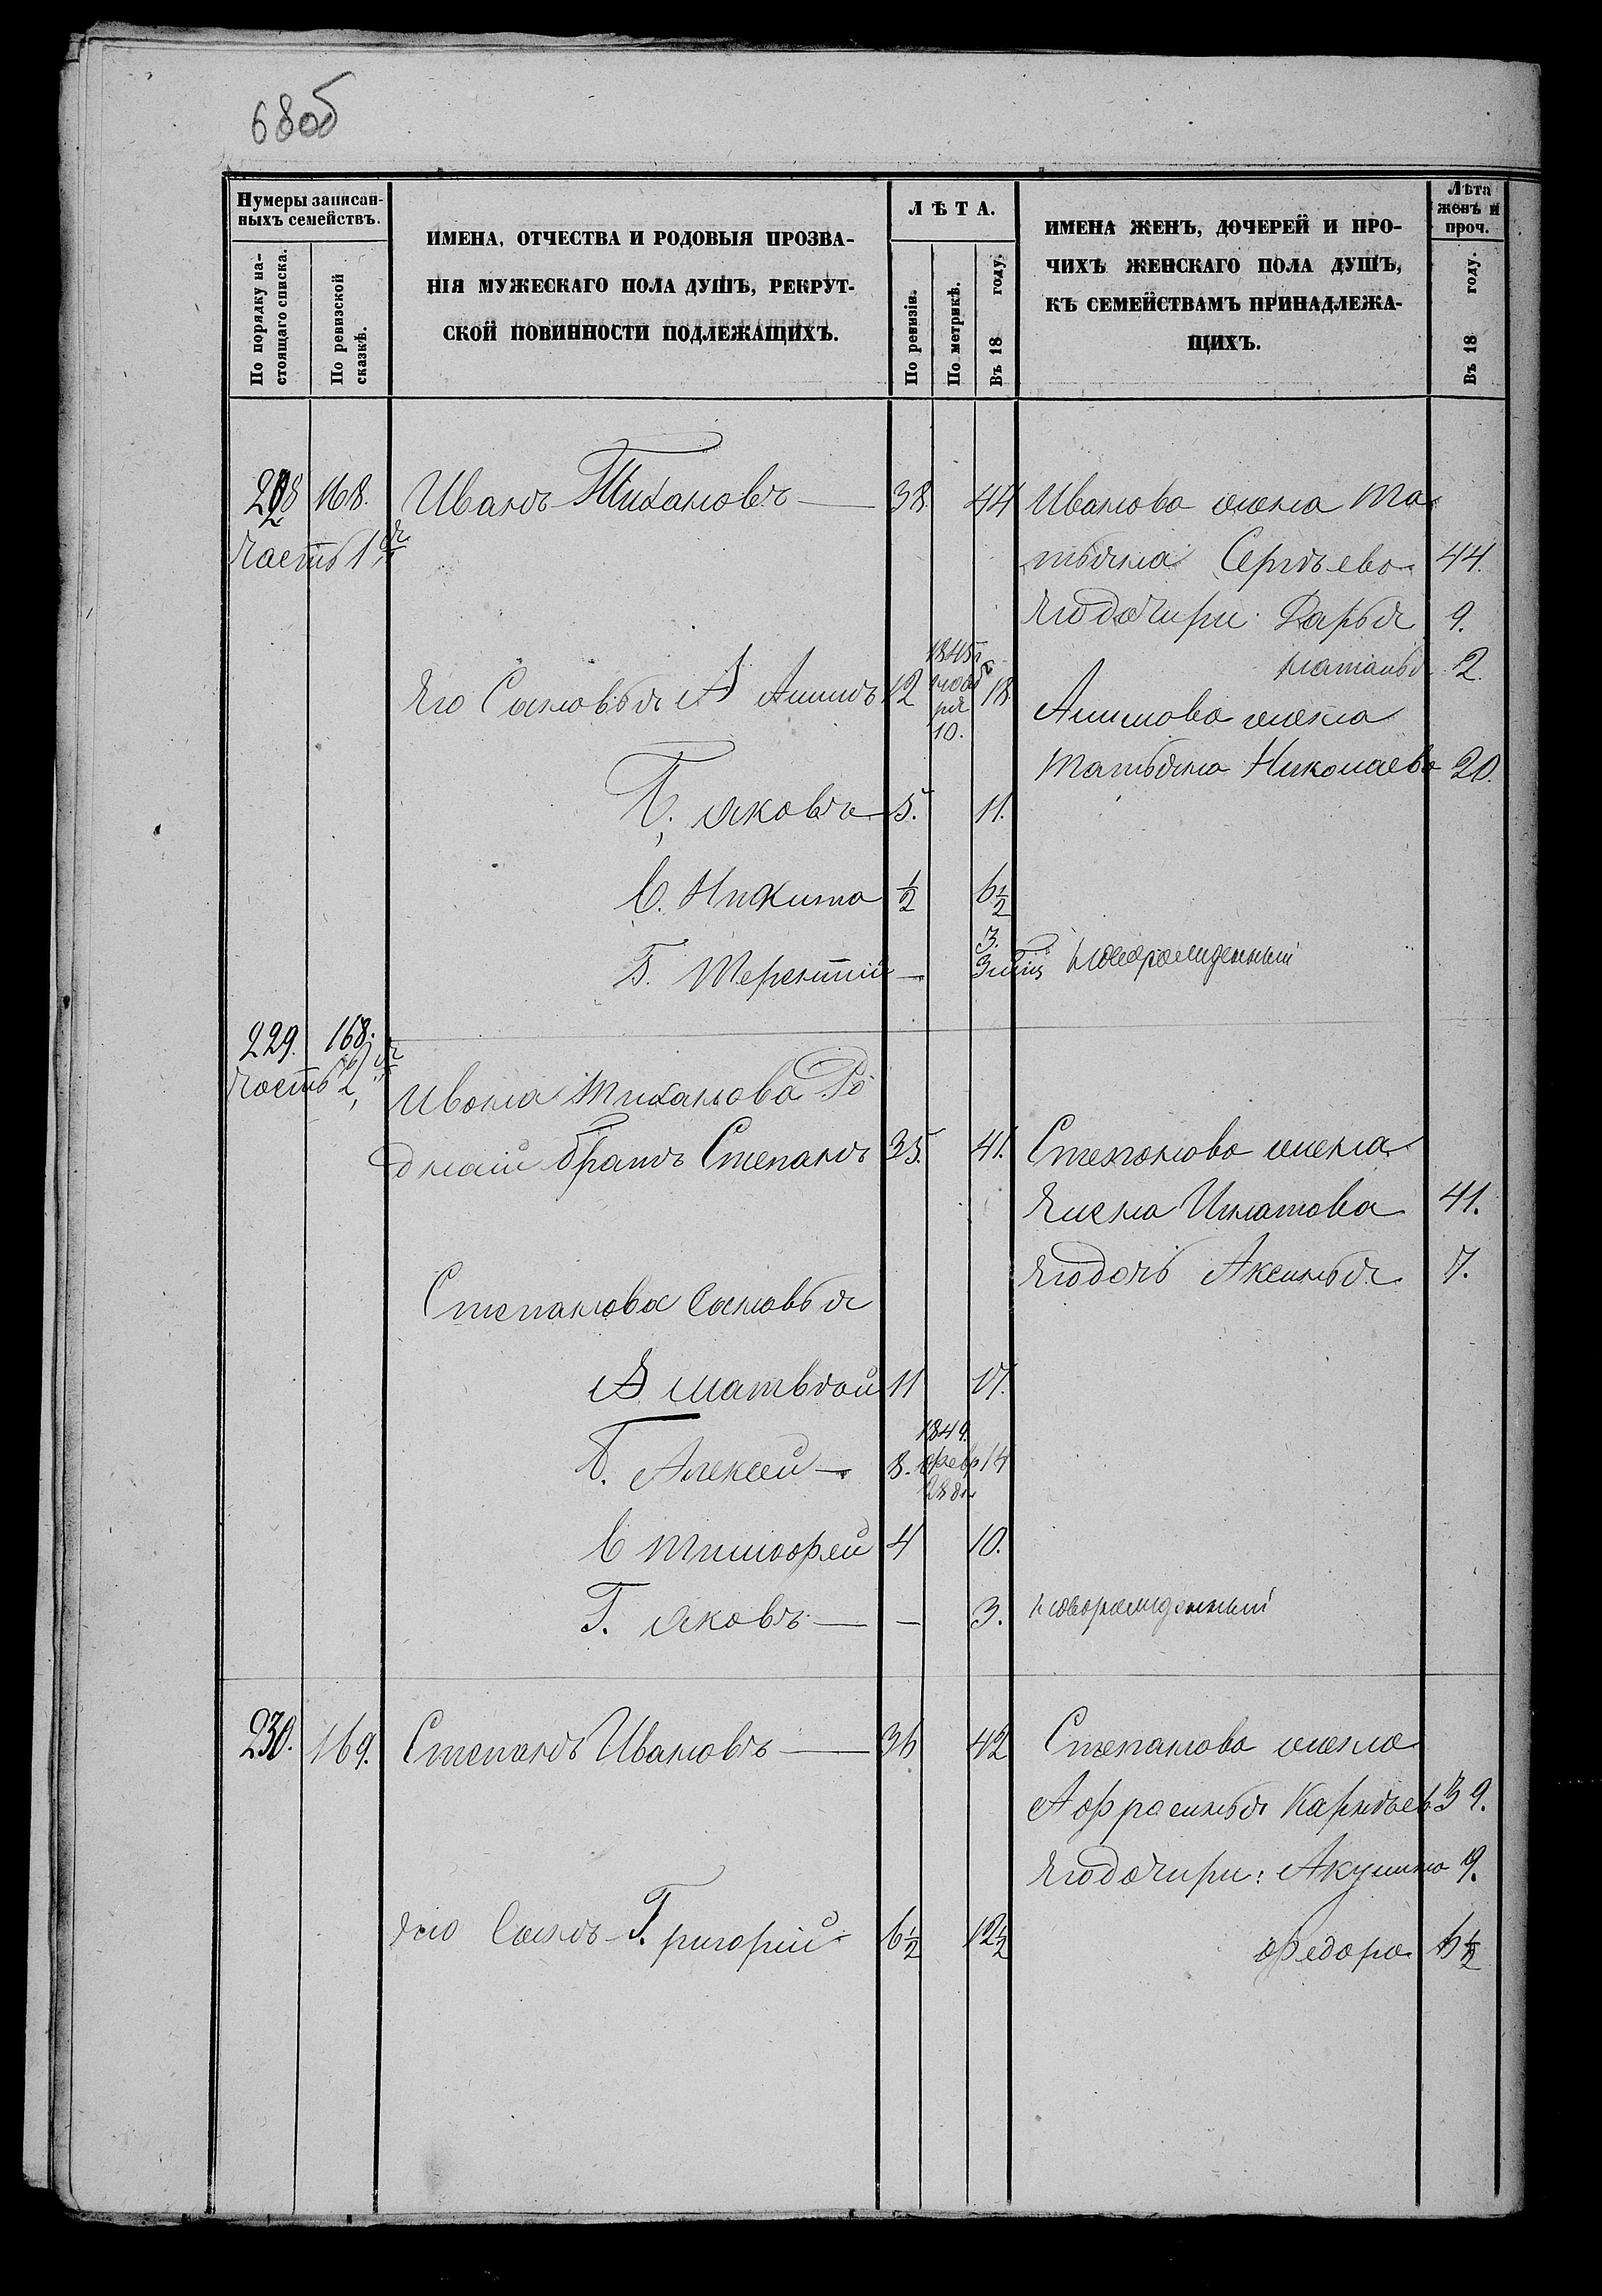 68об
Нумеры записан-
ныхъ семействъ.
По порядку на-
стоящаго списка.
По ревизской
сказкѣ.
ИМЕНА, ОТЧЕСТВА И РОДОВЫЯ ПРОЗВА-
НІЯ МУЖЕСКАГО ПОЛА ДУШЪ, РЕКРУТ-
СКОЙ ПОВИННОСТИ ПОДЛЕЖАЩИХЪ.
ЛѢТА.
По ревизіи.
По метрикѣ.
Въ 18 году.
ИМЕНА ЖЕНЪ, ДОЧЕРЕЙ И ПРО-
ЧИХЪ ЖЕНСКАГО ПОЛА ДУШЪ,
КЪ СЕМЕЙСТВАМЪ ПРИНАДЛЕЖА-
ЩИХЪ.
Лѣта
женъ и
проч.
Въ 18 году.
228 168. Иванъ Тихановъ 38. 44 Иванова жена Та
часть 1я
тьяна Сергѣева 44.
Ягодочири Дарья 9.
Наталья 2
Яго Сыновья А Акимъ 12 1845г ноября 10. 18.
Акимова жена
Татьяна Николаева 20.
Б. Яковъ 5. 11.
В. Никита ½ 6½
Г. Терентий — 3. 3 новорожденный
229. 168.
часть 2я
Ивана Тиханова Ро
дной братъ Степанъ 35. 41. Степанова жена
Елена Игнатова 41.
Ягодочь Аксинья 7.
Степанова Сыновья
А Матвѣй 11 17.
Б. Алексей — 8. 1849. февр 28 дн 14
В Тимофей 4 10.
Г. Яковъ — — 3. новорожденный
230. 169. Степанъ Ивановъ — 36 42 Степанова жена
Афрасинья Карнѣев 39.
Ягодочири: Акулина 19.
Яго Сынъ Григорий 6½ 12½
Федора 6½